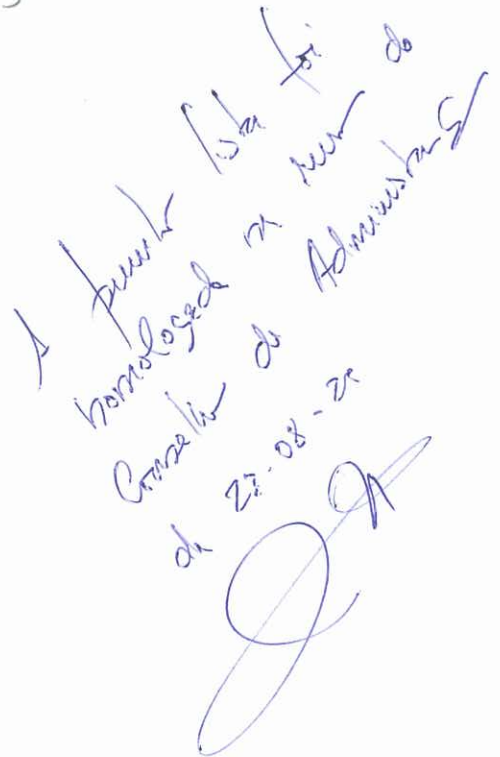 A presente lista foi
homologada na reun do
Conselho de Administração
de 27-08-21